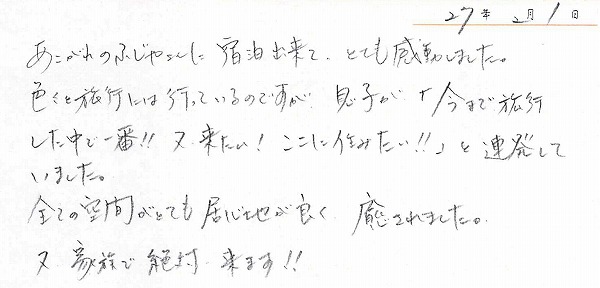 27年2月1日
あこがれのふじやさんに宿泊出来て、とても感動しました。
色々と旅行には行っているのですが、息子が「今まで旅行
した中で一番!! 又、来たい! ここに住みたい!!」と連発して
いました。
全ての空間がとても居心地が良く、癒されました。
又、家族で絶対、来ます!!